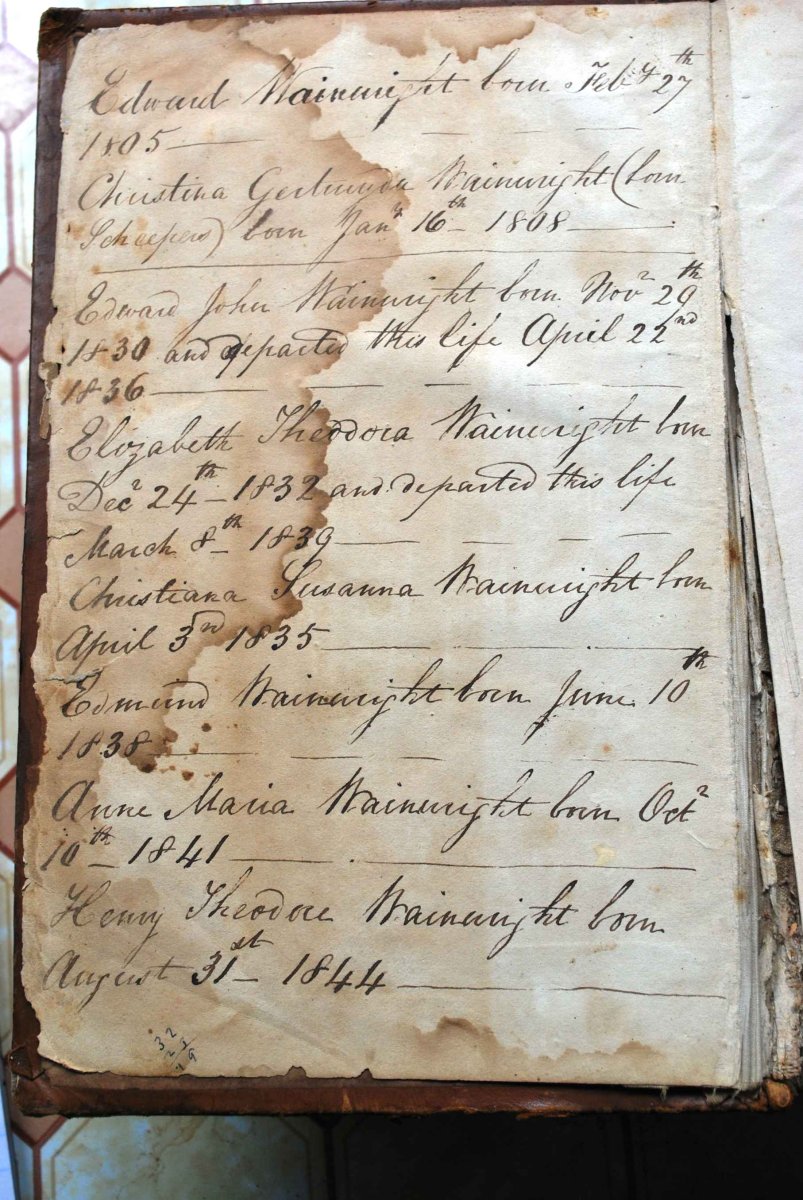 Edward Wainwright born Feby 27th
1805
Christina Gertruyda Wainwright (born
Scheepers) born Jany 16th 1808
Edward John Wainwright born Novr 29th
1830 and departed this life April 22nd
1836
Elizabeth Theodora Wainwright born
Decr 24th 1832 and departed this life
March 8th 1839
Christiana Susanna Wainwright born
April 3rd 1835
Edmund Wainwright born June 10th
1838
Anne Maria Wainwright born Octr
10th 1841
Henry Theodore Wainwright born
August 31st 1844